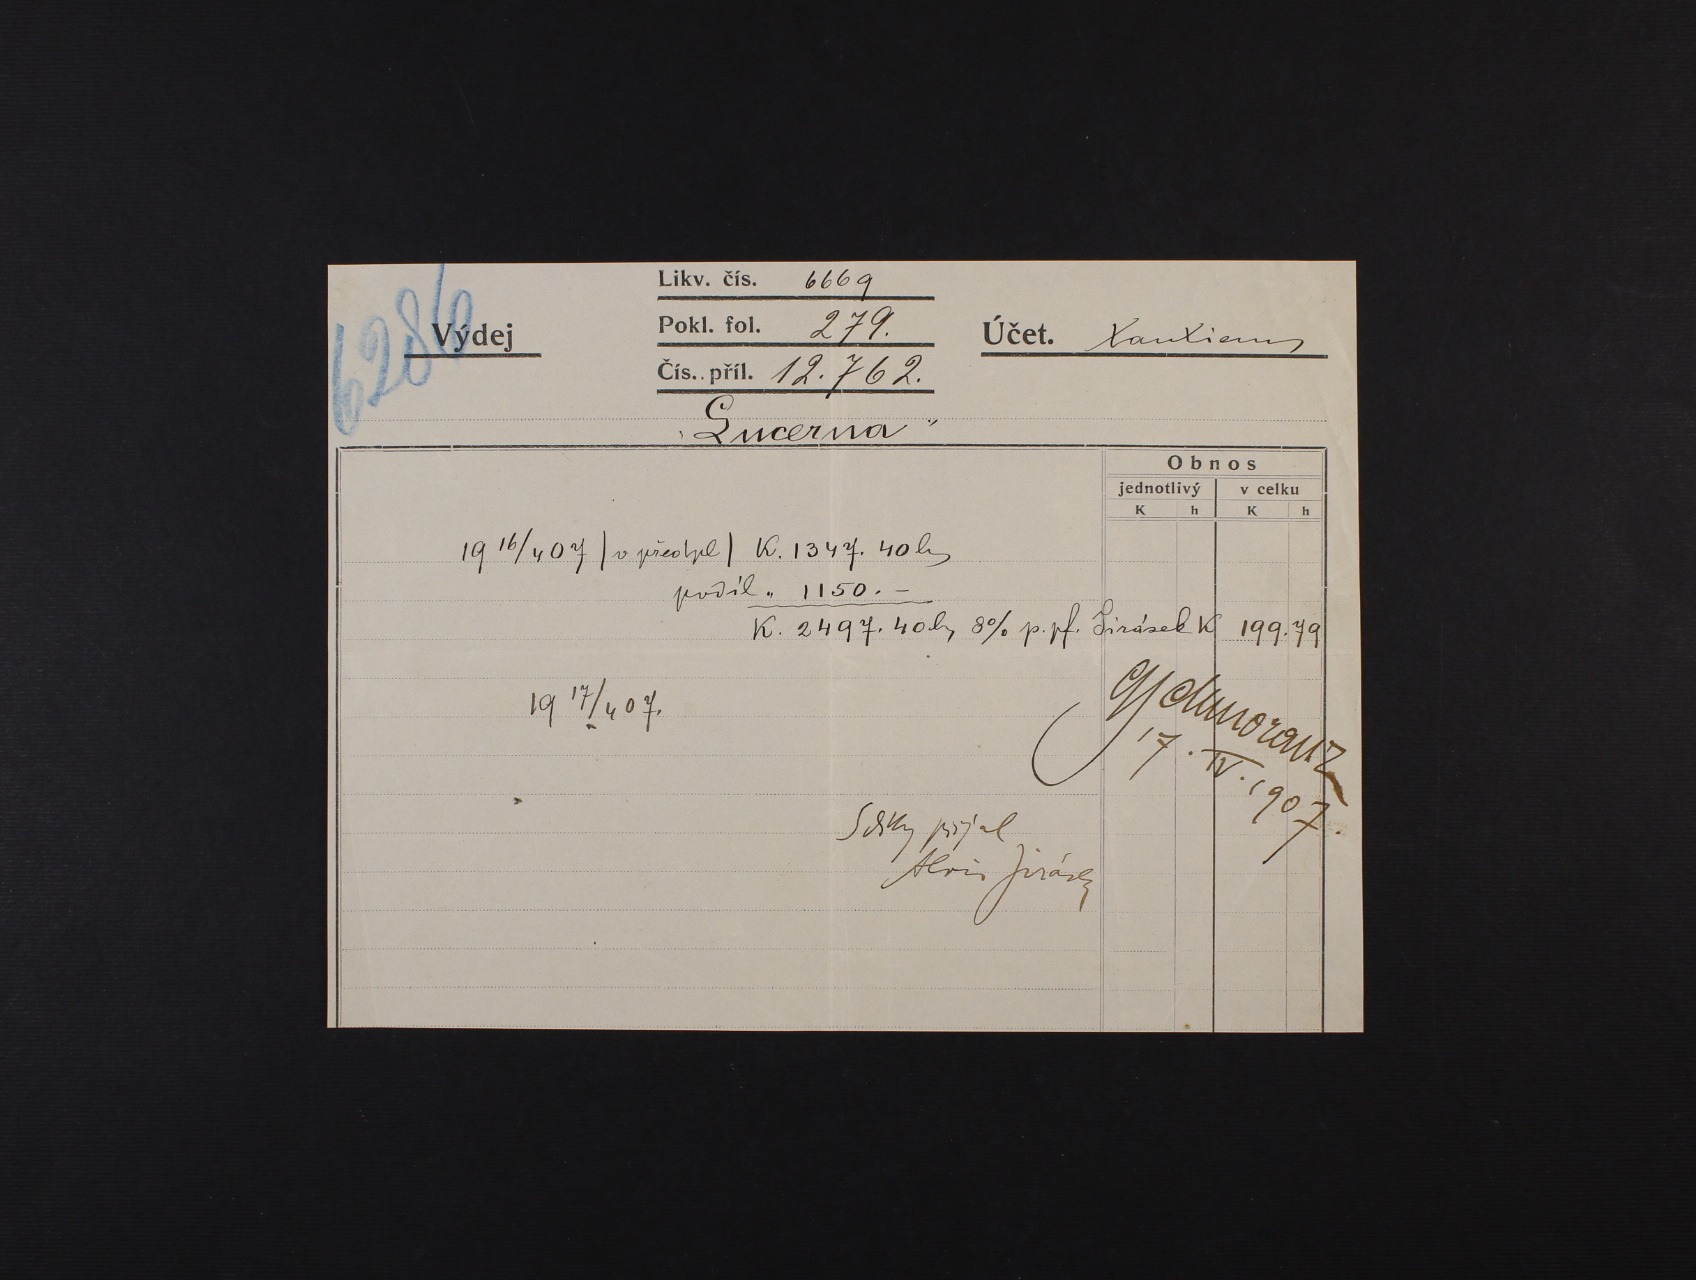 6286
Výdej
Likv. čís. 6669
Pokl. fol. 279.
Čís. příl. 12.762.
Účet. Tantiem
„Lucerna"
Obnos
jednotlivý v celku
K h K h
19 16/4 07 | v předpl | K. 1347. 40 h
podíl „ 1150. –
K. 2497. 40 h 8% p. pf. Jirásek K 199.79
19 17/4 07.
GSchmoranz
17. IV. 1907.
přijal
Alois Jirásek